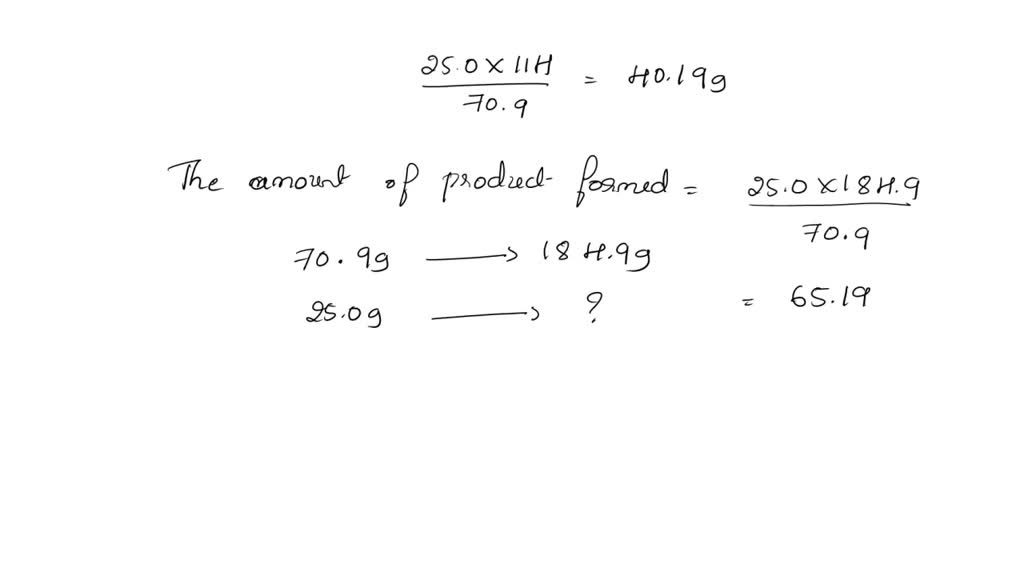 25.0 × 114 / 70.9 = 40.19g
The amount of product formed = 25.0 × 184.9 / 70.9
70.9g → 184.9g
25.0g → ? = 65.19